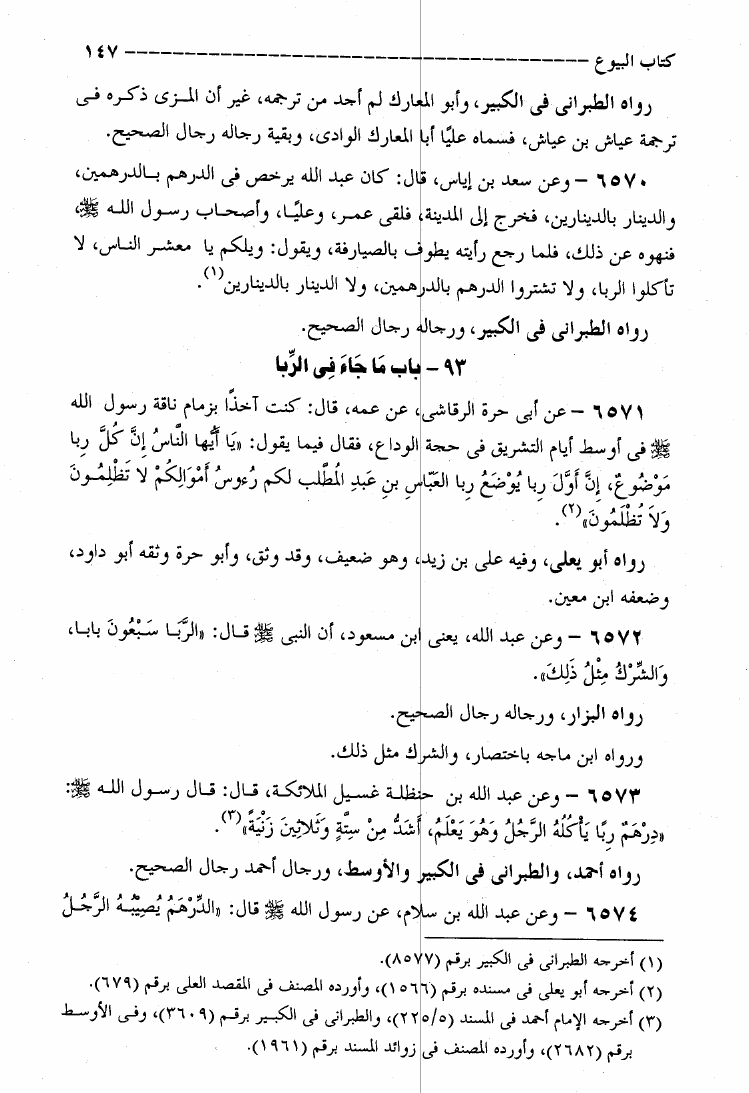 كتاب البيوع ------------------------------------------- ١٤٧
رواه الطبرانى فى الكبير، وأبو المعارك لم أجد من ترجمه، غير أن المزى ذكره فى
ترجمة عياش بن عياش، فسماه عليًا أبا المعارك الوادى، وبقية رجاله رجال الصحيح.
٦٥٧٠ – وعن سعد بن إياس، قال: كان عبد الله يرخص فى الدرهم بالدرهمين،
والدينار بالدينارين، فخرج إلى المدينة، فلقى عمر، وعليًا، وأصحاب رسول الله ﷺ،
فنهوه عن ذلك، فلما رجع رأيته يطوف بالصيارفة، ويقول: ويلكم يا معشر الناس، لا
تأكلوا الربا، ولا تشتروا الدرهم بالدرهمين، ولا الدينار بالدينارين(١).
رواه الطبرانى فى الكبير، ورجاله رجال الصحيح.
٩٣ – باب مَا جَاءَ فِى الرِّبا
٦٥٧١ – عن أبى حرة الرقاشى، عن عمه، قال: كنت آخذًا بزمام ناقة رسول الله
ﷺ فى أوسط أيام التشريق فى حجة الوداع، فقال فيما يقول: «يَا أَيُّها النَّاسُ إِنَّ كُلَّ رِبا
مَوْضُوعٌ، إِنَّ أَوَّلَ رِبا يُوْضَعُ رِبا العَبَّاسِ بنِ عَبدِ المُطَّلب لكم رُءوسُ أَمْوَالِكُمْ لا تَظْلِمُونَ
وَلاَ تُظْلَمُونَ»(٢).
رواه أبو يعلى، وفيه على بن زيد، وهو ضعيف، وقد وثق، وأبو حرة وثقه أبو داود،
وضعفه ابن معين.
٦٥٧٢ – وعن عبد الله، يعنى ابن مسعود، أن النبى ﷺ قال: «الرِّبَا سَبْعُونَ بابا،
وَالشِّرْكُ مِثْلُ ذَلِكَ».
رواه البزار، ورجاله رجال الصحيح.
ورواه ابن ماجه باختصار، والشرك مثل ذلك.
٦٥٧٣ – وعن عبد الله بن حنظلة غسيل الملائكة، قال: قال رسول الله ﷺ:
«دِرْهَمُ رِبًا يَأْكُلُهُ الرَّجُلُ وَهُوَ يَعْلَمُ، أَشَدُّ مِنْ سِتَّةٍ وَثَلاَثِينَ زَنْيَةً»(٣).
رواه أحمد، والطبرانى فى الكبير والأوسط، ورجال أحمد رجال الصحيح.
٦٥٧٤ – وعن عبد الله بن سلام، عن رسول الله ﷺ قال: «الدِّرْهَمُ يُصِيْبُهُ الرَّجُلُ
(١) أخرجه الطبرانى فى الكبير برقم (٨٥٧٧).
(٢) أخرجه أبو يعلى فى مسنده برقم (١٥٦٦)، وأورده المصنف فى المقصد العلى برقم (٦٧٩).
(٣) أخرجه الإمام أحمد فى المسند (٢٢٥/٥)، والطبرانى فى الكبير برقم (٣٦٠٩)، وفى الأوسط
برقم (٢٦٨٢)، وأورده المصنف فى زوائد المسند برقم (١٩٦١).